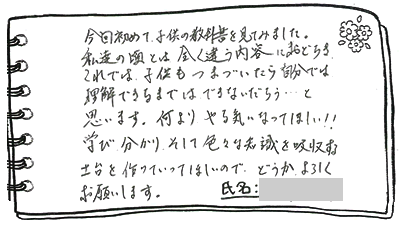 今回初めて、子供の教科書を見てみました。
私達の頃とは全く違う内容におどろき
これでは、子供もつまづいたら自分では
理解できるまではできないだろう…と
思います。何よりやる気になってほしい!!
学び分かり、そして色々な知識を吸収する
土台を作っていってほしいので、どうか、よろしく
お願いします。
氏名: